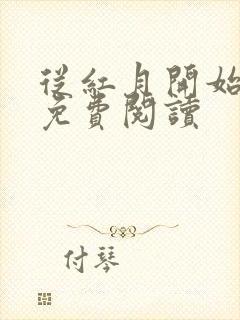 從紅月開始
免費閱讀
付琴